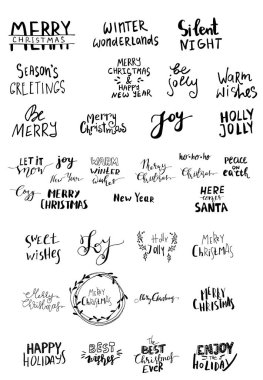 MERRY
CHRISTMAS
MERRY
WINTER
wonderlands
Silent
NIGHT
SEASON'S
GREETINGS
MERRY
CHRISTMAS
&
HAPPY
NEW YEAR
be
jolly
Warm
wishes
Be
MERRY
Merry
Christmas
Joy
HOLLY
JOLLY
LET IT
snow
joy
New Year
WARM
WINTER
wishes
Merry
Christmas
ho-ho-ho
Christmas
PEACE
on
earth
Cozy
MERRY
CHRISTMAS
New Year
HERE
comes
SANTA
sweet
wishes
Joy
Holly
Jolly
MERRY
CHRISTMAS
Merry
Christmas
MERRY
CHRISTMAS
Merry Christmas
MERRY
CHRISTMAS
HAPPY
HOLIDAYS
BEST
wishes
The
BEST
Christmas
EVER
ENJOY
the
HOLIDAY